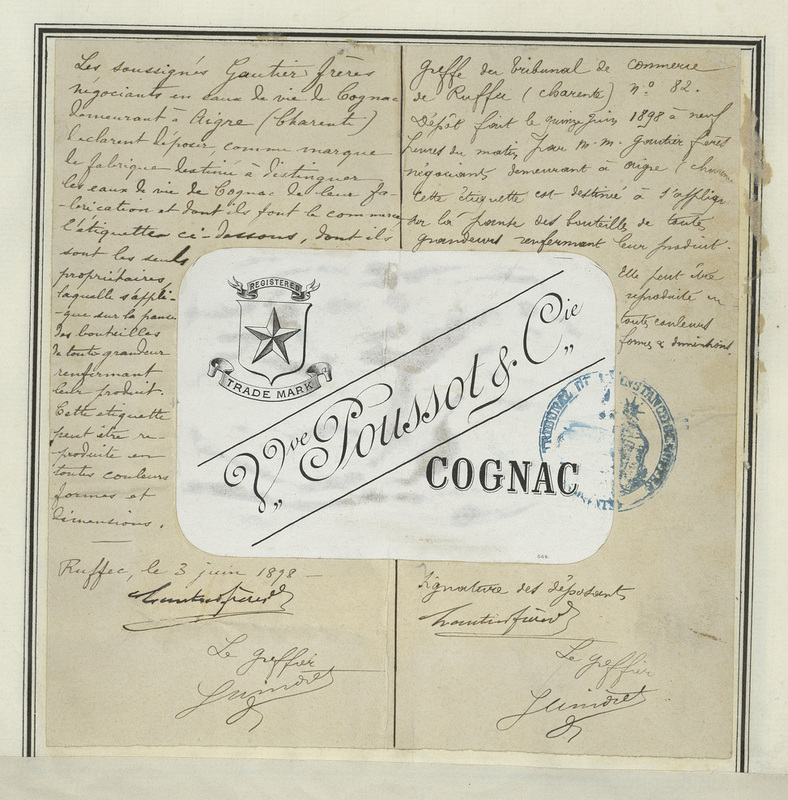 Les soussignés Gautier frères
négociants en eaux de vie de Cognac
demeurant à Aigre (Charente)
déclarent déposer, comme marque
de fabrique destinée à distinguer
les eaux de vie de Cognac de leur fa-
-brication et dont ils font le commerce,
l'étiquette ci-dessous, dont ils
sont les seuls
propriétaires
laquelle s'appli-
-que sur la panse
des bouteilles
de toute grandeur
renfermant
leur produit.
Cette étiquette
peut être re-
-produite en
toutes couleurs
formes et
dimensions.
Ruffec, le 3 juin 1898
Gautier frères
Le greffier
Greffe du Tribunal de commerce
de Ruffec (Charente) n° 82.
Dépôt fait le quinze juin 1898 à neuf
heures du matin, par M.M. Gautier frères
négociants demeurant à Aigre (Charente
Cette étiquette est destinée à s'appliquer
sur la panse des bouteilles de toutes
grandeurs renfermant leur produit.
Elle peut être
reproduite en
toutes couleurs
formes & dimensions.
REGISTERED
TRADE MARK
Vve Poussot & Cie
COGNAC
TRIBUNAL DE 1ere INSTANCE DE RUFFEC
Signature des déposants
Gautier frères
Le greffier